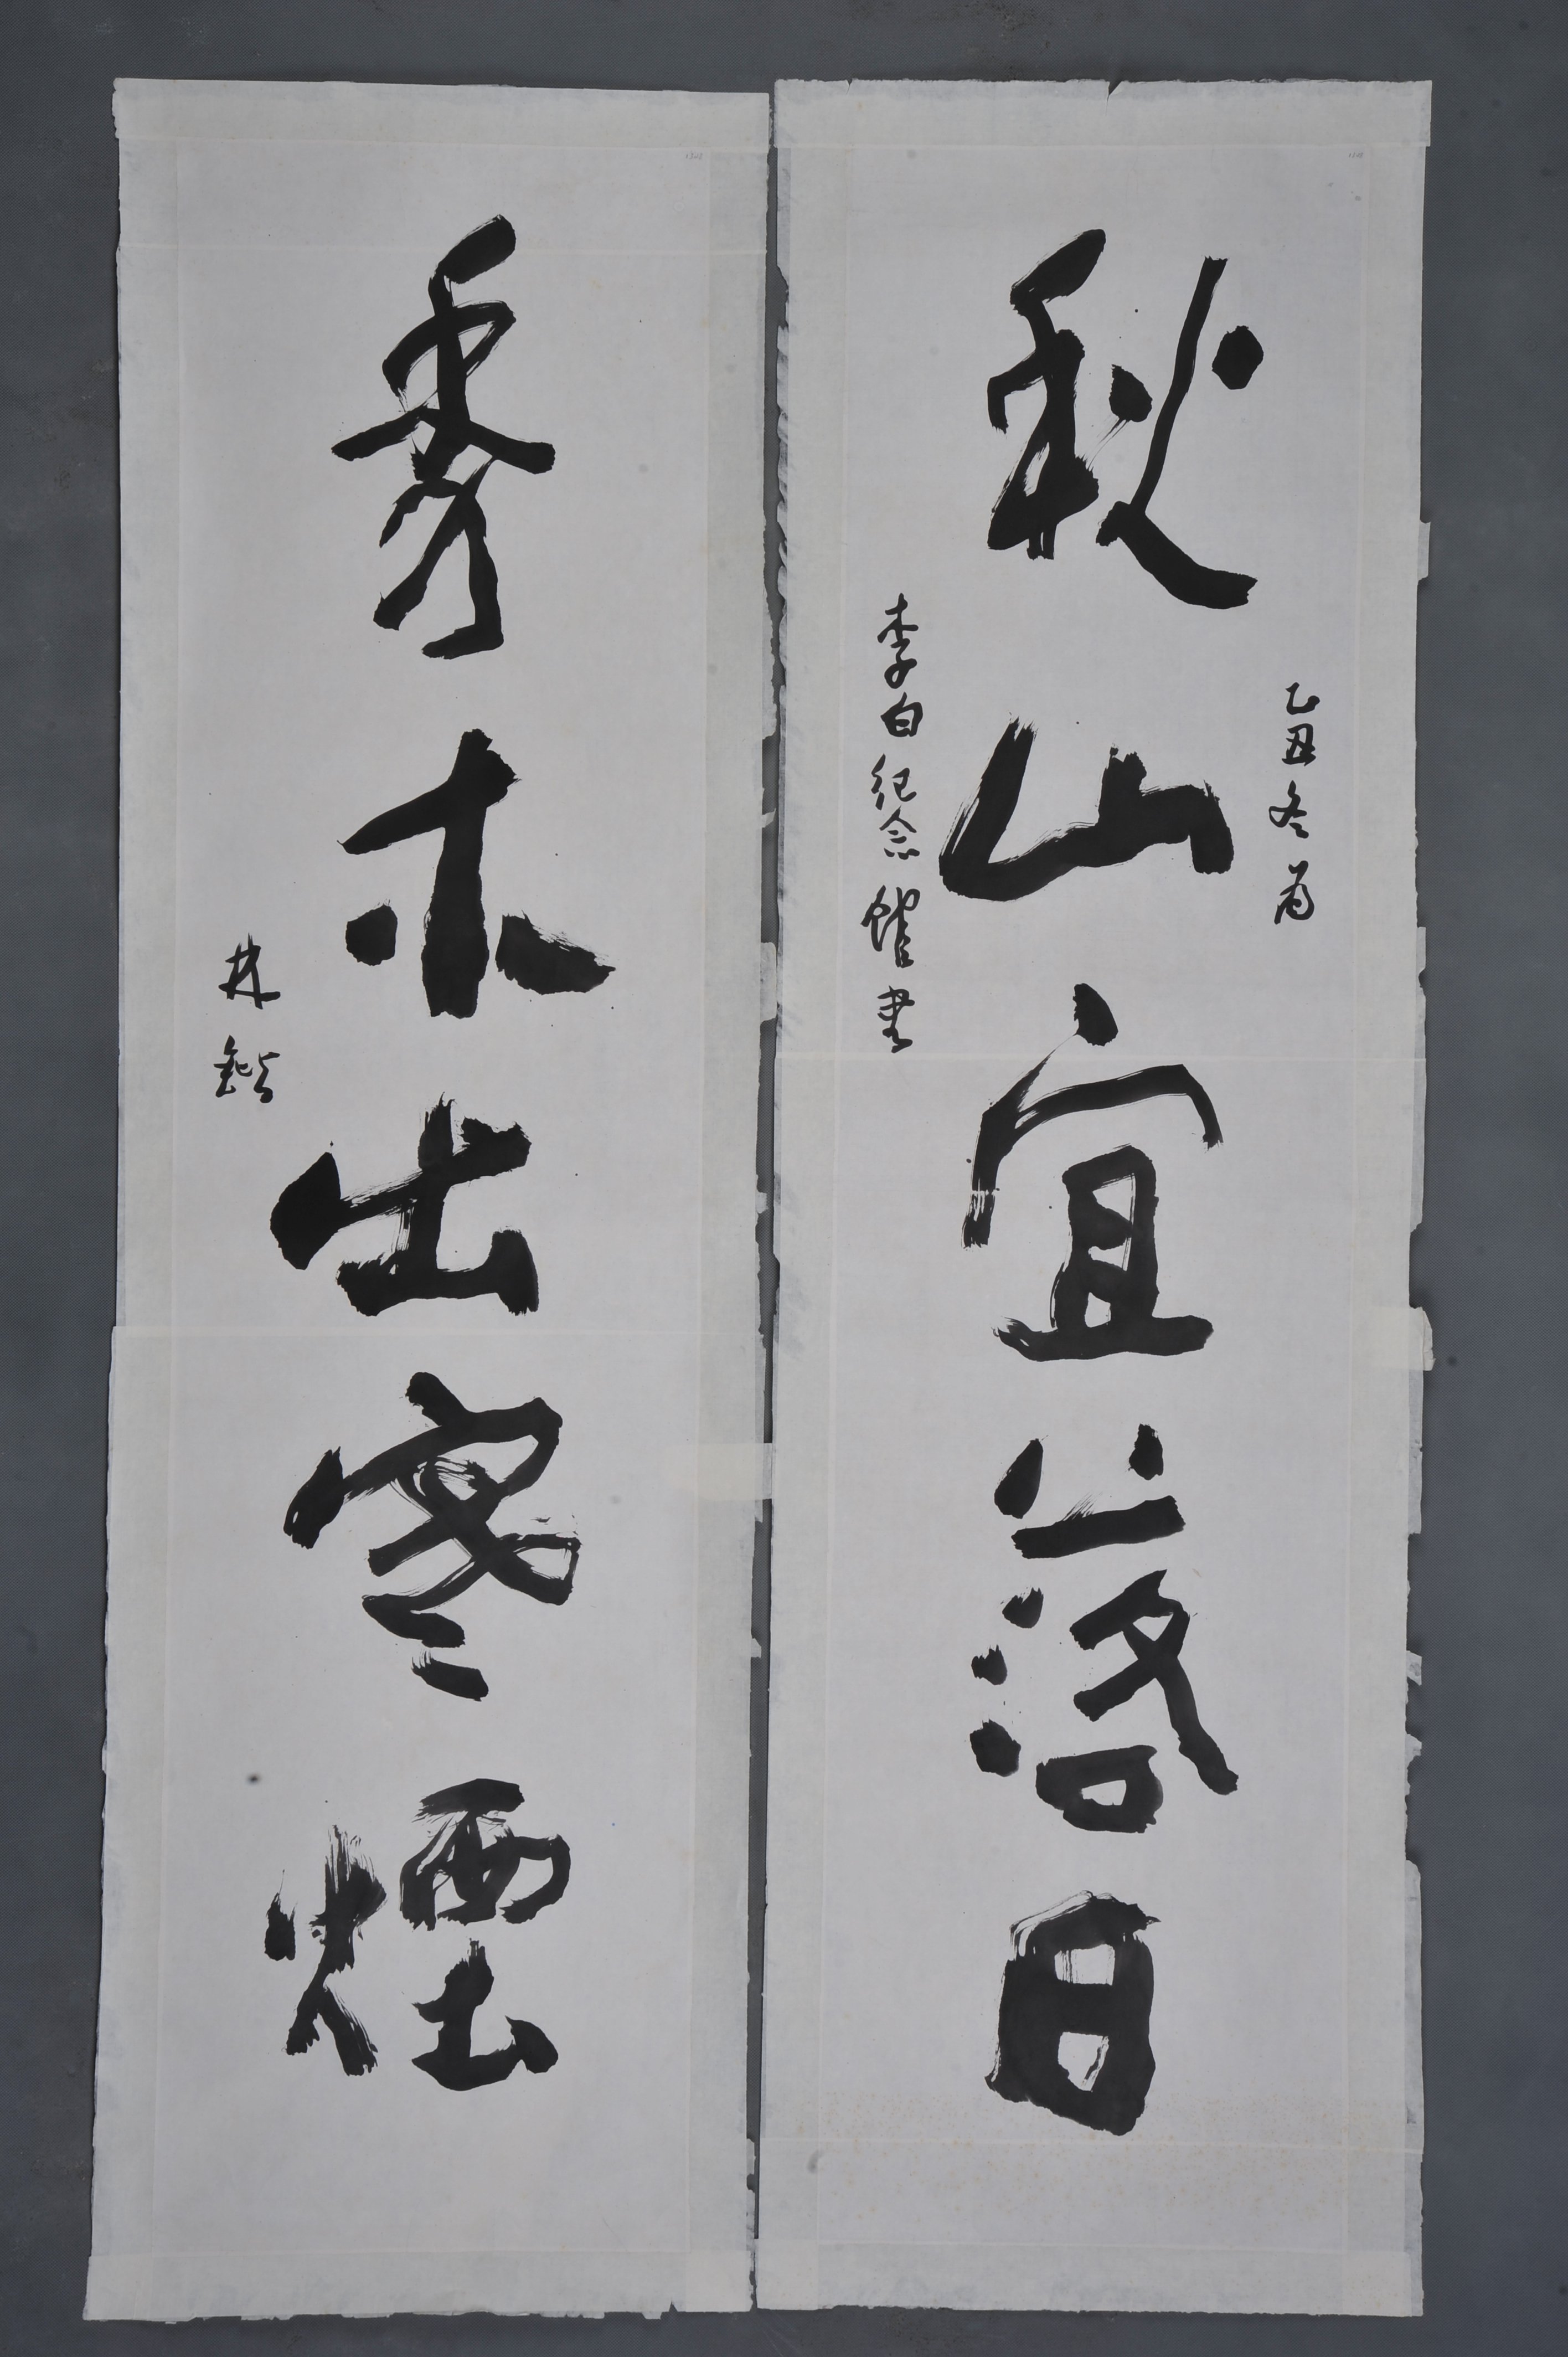 秋山宜落日
乙丑冬为
李白纪念馆书
秀木出寒煙
林锴